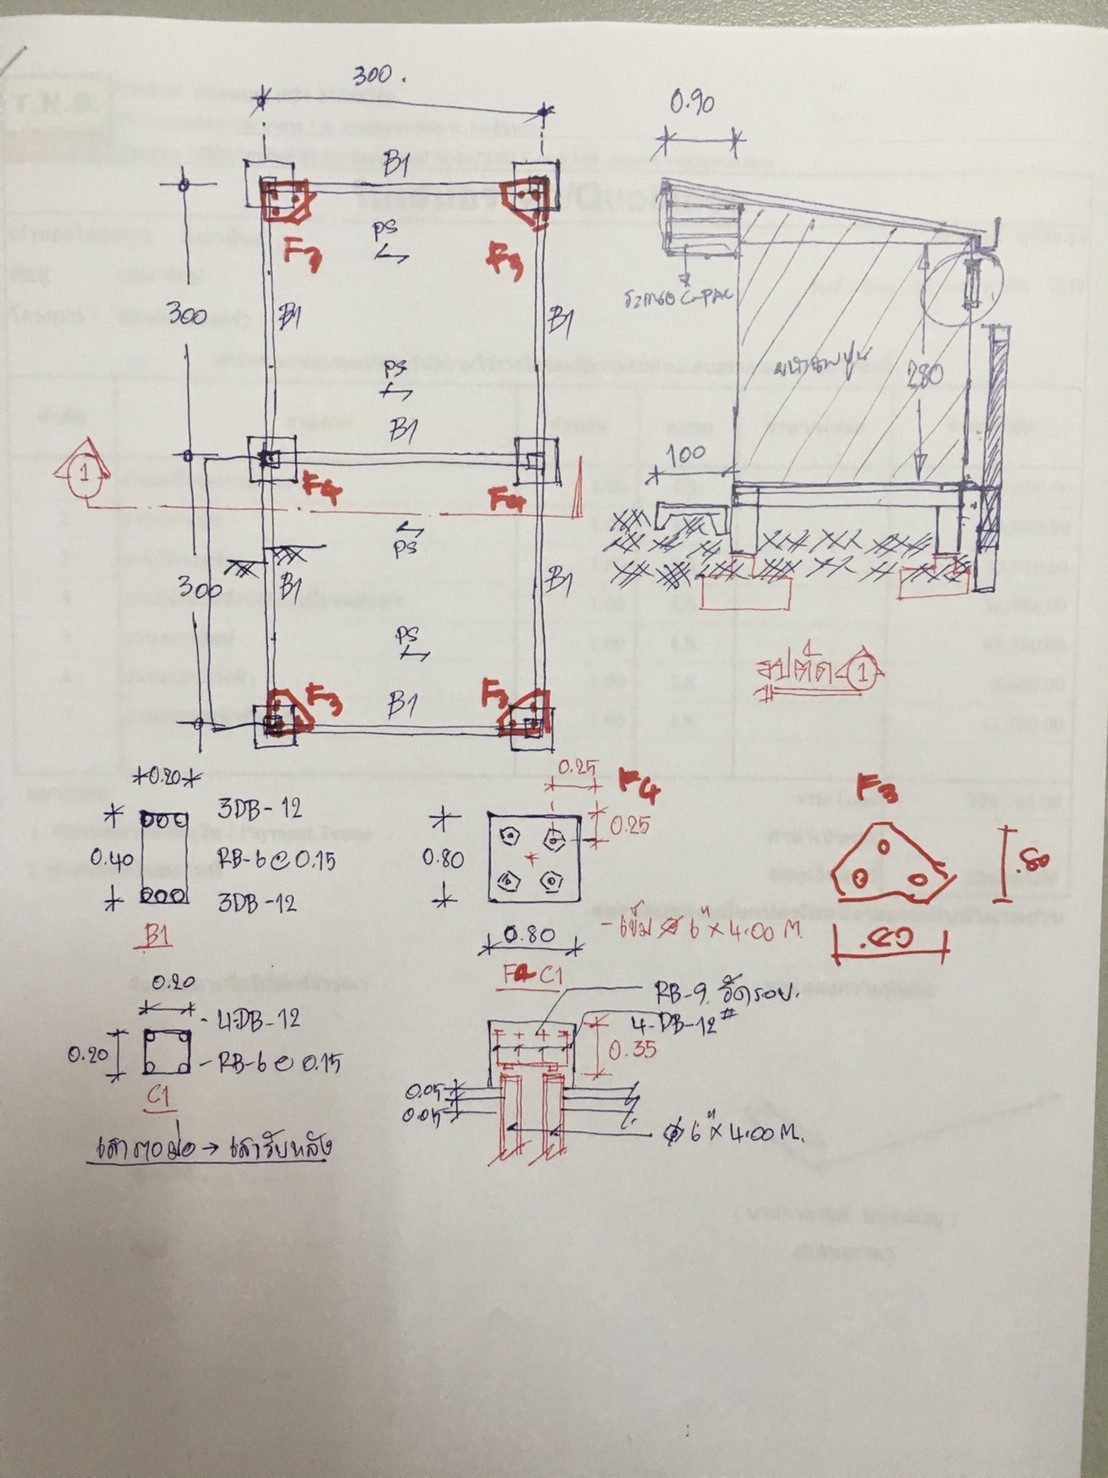 300.
0.90
B1
F3
F3
PS
300
B1
B1
ระแนง C-PAC
ผนังก่อปูน
280
PS
B1
1
F4
F4
100
PS
300
B1
B1
PS
รูปตัด 1
F3
F3
B1
0.20
0.25
F4
F3
3DB-12
0.25
0.40
RB-6@0.15
0.80
.80
3DB-12
B1
0.80
-เข็ม Ø 6"x4.00 M.
F4 C1
0.20
RB-9. รัดรอบ.
-4-DB-12
4-DB-12#
0.20
-RB-6@0.15
0.35
C1
0.05
0.05
Ø 6"x4.00 M.
เสาตอม่อ → เสารับหลัง